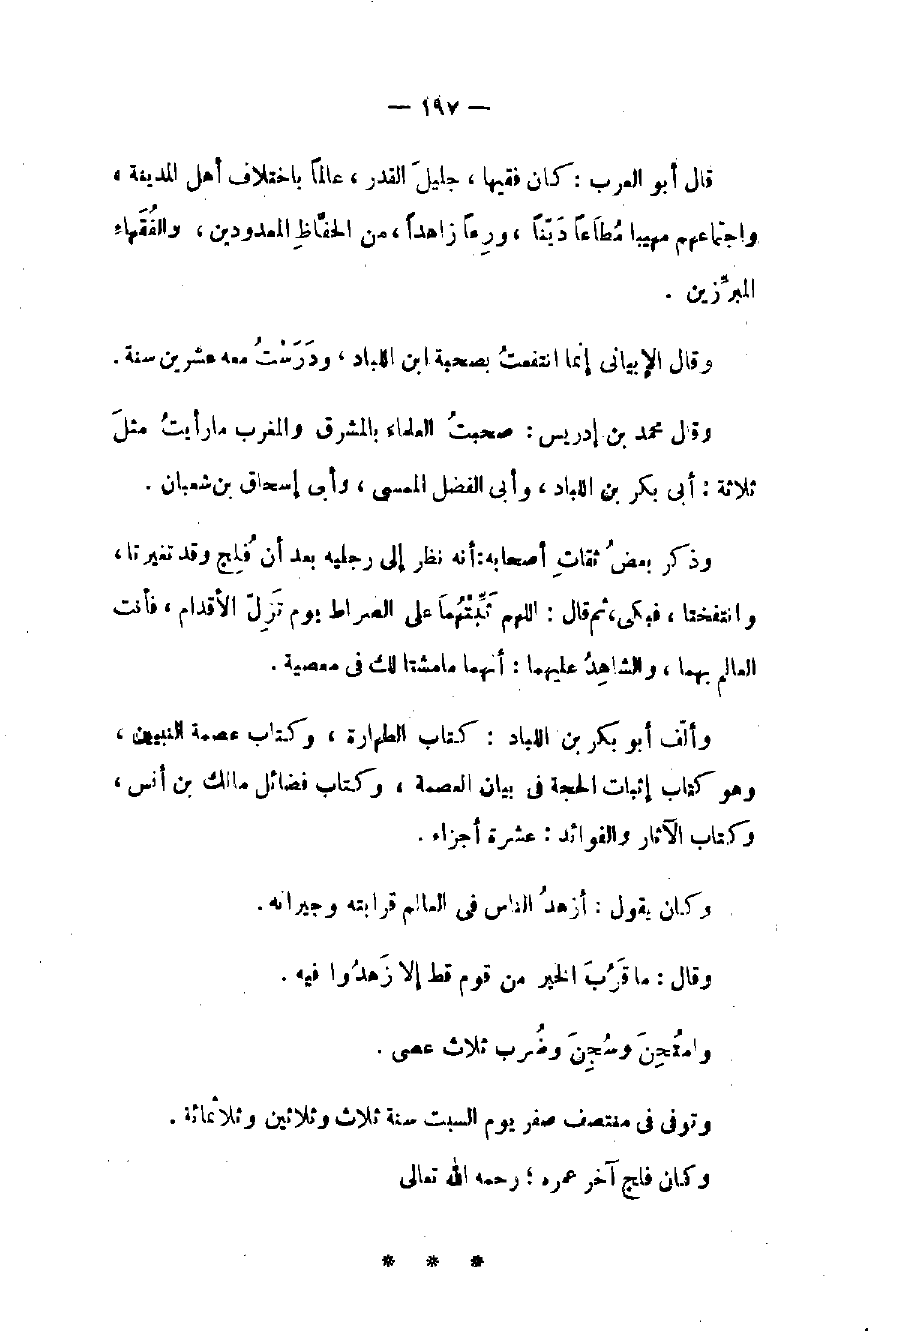 — ١٩٧ —
قال أبو العرب : كان فقيها ، جليلَ القدر ، عالماً باختلاف أهل المدينة ،
واجتماعهم مهيبا مُطَاعاً دَيّناً ، ورِعاً زاهداً ، من الحفَّاظِ المعدودين ، والفُقَهاء
المبرّزين .
وقال الإبيانى إنما انتفعتُ بصحبة ابن اللباد ، ودَرَسْتُ معه عشرين سنة .
وقال محمد بن إدريس : صحبتُ العلماء بالمشرق والمغرب مارأيتُ مثلَ
ثلاثة : أبى بكر بن اللباد ، وأبى الفضل الممسى ، وأبى إسحاق بن شعبان .
وذكر بعضُ ثقاتِ أصحابه : أنه نظر إلى رجليه بعد أن فُلِج وقد تغيرتا ،
وانتفختا ، فبكى ، ثم قال : اللهم ثَبِّتْهُمَا على الصراط يوم تَزِلّ الأقدام ، فأنت
العالم بهما ، والشاهِدُ عليهما : أنهما مامشتا لك فى معصية .
وألّف أبو بكر بن اللباد : كتاب الطهارة ، وكتاب عصمة النبيين ،
وهو كتاب إثبات الحجة فى بيان العصمة ، وكتاب فضائل مالك بن أنس ،
وكتاب الآثار والفوائد : عشرة أجزاء .
وكان يقول : أزهدُ الناس فى العالم قرابته وجيرانه .
وقال : ما قَرُبَ الخير من قوم قط إلا زَهدُوا فيه .
وامتُحِنَ وسُجِنَ وضُرب ثلاث عصى .
وتوفى فى منتصف صفر يوم السبت سنة ثلاث وثلاثين وثلاثمائة .
وكان فلج آخر عمره ؛ رحمه الله تعالى
* * *